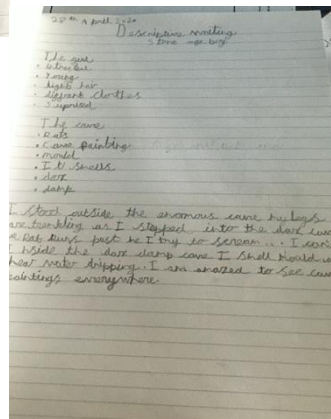 28th April 2020
Descriptive writing
Stone age boy
The girl
young
hair
clothes
The cave
Rats
Cave painting
mould
It smells
dark
damp
I stood outside the enormous cave my legs
are trembling as I stepped into the dark cave
a Rat Runs past me I try to scream... I
inside the dark damp cave I smell mould
hear water dripping. I am amazed to see cave
paintings everywhere